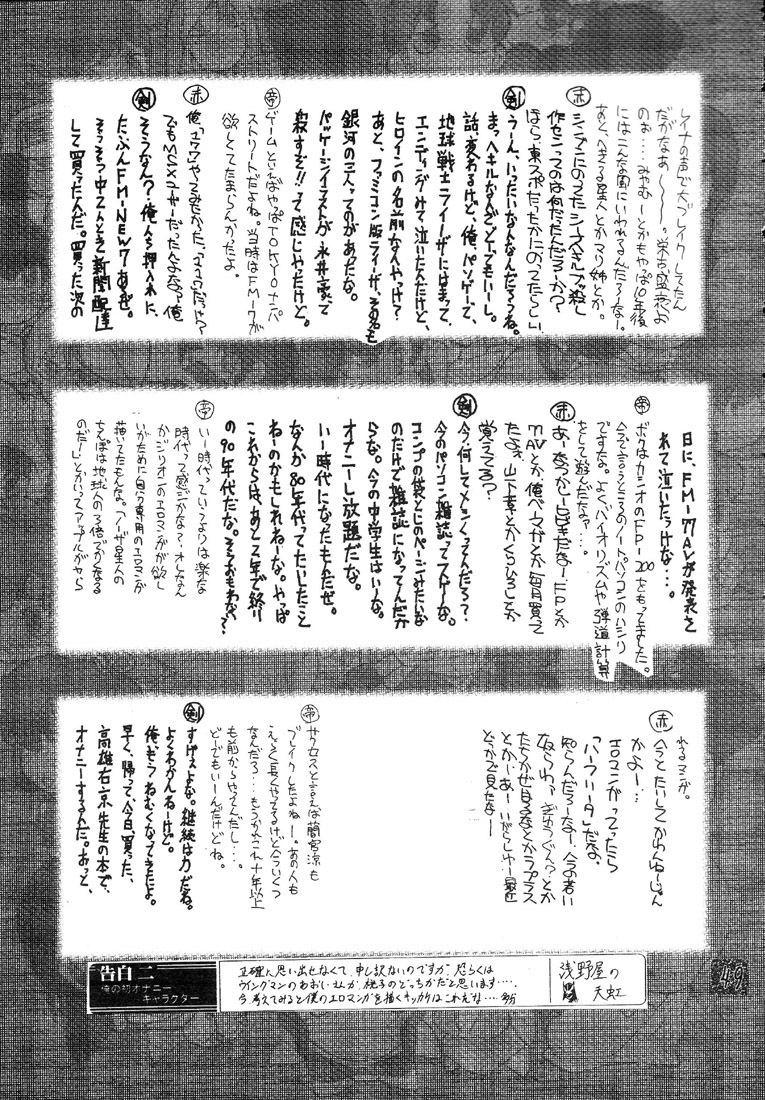 レイナの声で大ブレイクしてたん
だがなあ〜〜〜。栄古盛衰よ
のお…。みやむーとかもやっぱ6年後
にはこんな風にいわれるんだろーなー。
あと、へきる星人とかマリ姉とか。
赤 シンプソンにのってたシースキルブッ殺し
作センつのは何だったんだろーか?
ほら、東スポだったかにのってたらしい。
剣 うーん、いったいなんなんだろうね。
まっ、ヘキルなんざどーでもいーし。
話、変わるけど、俺、パソゲーで、
地球戦士ライーザにはまって、
エンディングみて泣いたんだけど、
ヒロインの名前なんやっけ?
あと、ファミコン版ライーザ、その名も
銀河の三人ってのがあったな。
パッケージイラストが永井豪って
寂すぎ!!って感じやったけど。
帝 ゲームといえばやっぱTOKYOナンパ
ストリートだよね。当時はFM-7が
欲しくてたまらんかったよ。
赤 俺、「ユウ」やってみたかった、「ユウ」だっや?
でもMSXユーザーだったんよなあ、俺
剣 そうなん?俺んち押入れに、
たぶんFM-NEW7あるぜ。
そうそう中二んとき新聞配達
して買ったんだ。買った次の
日に、FM-77AVが発表さ
れて泣いたっけな…。
帝 ボクはカシオのFP-200をもってました。
今で言うところのノートパソコンのハシリ
ですな。よく、バイオリズムや弾道計算
をして遊んだなァ…。
赤 あー、なつかしーひびきだなー、FPとか
77AVとか、俺ベーマガとか毎月買って
たよォ、山下章とかくらひろしとか
覚えてる?
剣 今、何してメシくってんだろ?
今のパソコン雑誌ってスゲーな。
コンプの袋とじのページみたいな
のだけで雑誌になってんだか
らな。今の中学生はいーな。
オナニーし放題だな。
いー時代になったもんだぜ。
なんか80年代ってたいしたこと
ねーのかもしれねーな。やっぱ
これからは、あと2年で終り
の90年代だな。そうおもわね?
帝 いー時代っていうよりは楽な
時代って感じかな?オレなん
かジリオンのエロマンガが欲し
いがために自分専用のエロマンガ
描いてたもんな。「ノーザ星人の
ちんぽは地球人の3倍ブっくなる
のだ!」とかいってアップルがやら
れるマンガ。
赤 今とたいしてかわんねーじゃん
かよー…
エロマンガってったら
「ハーフリータ」だろな
知らんだろーなー、今の若い
奴らわ。ぎゅうぐん?とか
たちかぜ見る者とかラプラス
とかじ、あーいがらしゆー最近
どっかで見たなー
帝 サクセスと言えば蘭宮涼も
ブレイクしたよねー。あの人も
えっらく長くやってるけど今いくつ
なんだろ…もうかれこれ十年以上
も前からやってんだし…。
どーでもいーんだけどね。
剣 すげぇよな。継続は力だね。
よくわかんねーけど。
俺、もうねむくなってきたよ。
早く帰って、今日買った、
高雄右京先生の本で、
オナニーするんだ。おっと、
告白二
俺の初オナニー
キャラクター
正確に思い出せなくて、申し訳ないのですが、恐らくは
ウイングマンのあおいさんか、桃子のどっちかだと思います….
今、考えてみると僕のエロマンガを描くキッカケはこれだな…. 多分
浅野屋の
天虹
49